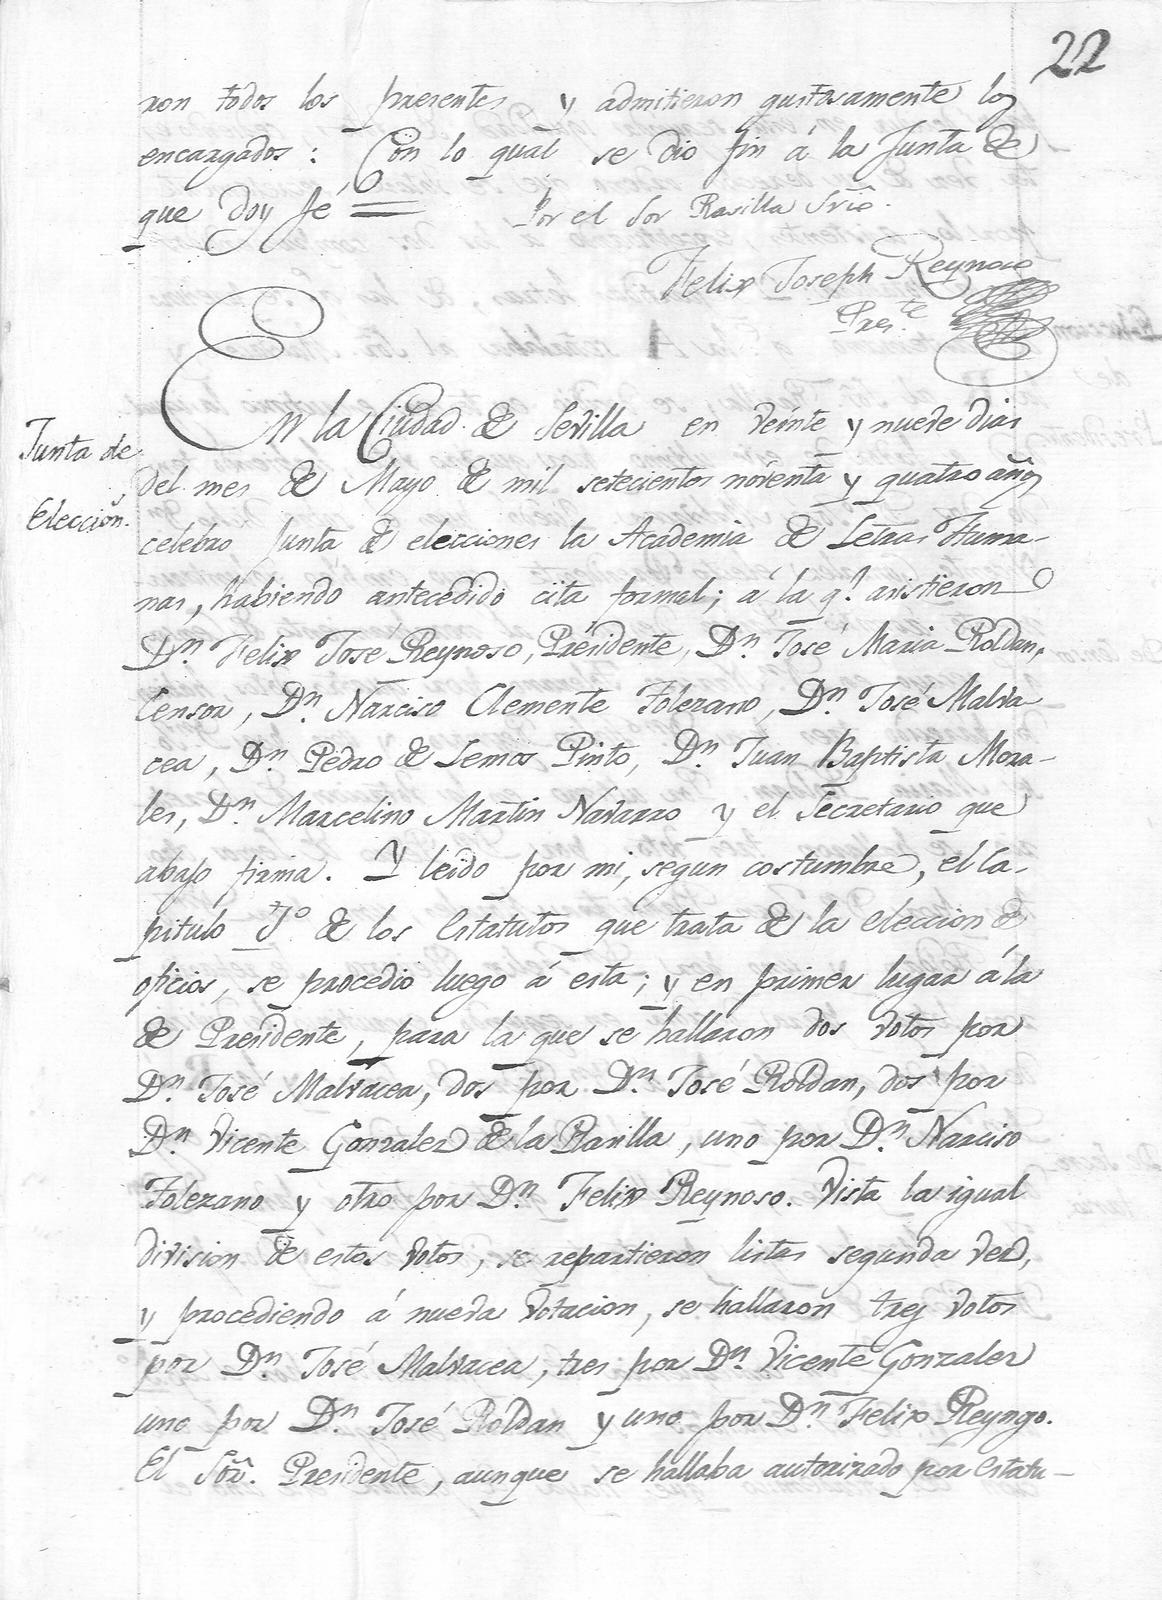 22
ron todos los presentes y admitieron gustosamente los
encargados: Con lo qual se dio fin á la Junta de
que doy fé = Por el Sor Rasilla Srio.
Felix Joseph Reynoso
Pres.te
Junta de
Eleccion.s
En la Ciudad de Sevilla en veinte y nueve dias
del mes de Mayo de mil setecientos noventa y quatro años
celebro Junta de elecciones la Academia de Letras Huma-
nas, habiendo antecedido cita formal; á la q.e asistieron
Dn. Felix José Reynoso, Presidente, Dn. José Maria Roldan,
Censor, Dn. Narciso Clemente Tolezano, Dn. José Malva-
cea, Dn. Pedro de Lemos Pinto, Dn. Juan Baptista Mora-
les, Dn. Marcelino Martin Navarro y el Secretario que
abajo firma. Y leido por mi, segun costumbre, el Ca-
pitulo 7o de los Estatutos que trata de la eleccion de
oficios, se procedio luego á esta; y en primer lugar á la
de Presidente, para la que se hallaron dos votos por
Dn. José Malvacea, dos por Dn. José Roldan, dos por
Dn. Vicente Gonzalez de la Rasilla, uno por Dn. Narciso
Tolezano y otro por Dn. Felix Reynoso. Vista la igual
division de estos votos, se repartieron listas segunda vez,
y procediendo á nueva votacion, se hallaron tres votos
por Dn. José Malvacea, tres por Dn. Vicente Gonzalez
uno por Dn. José Roldan y uno por Dn. Felix Reynoso.
El Sor. Presidente, aunque se hallaba autorizado por Estatu-